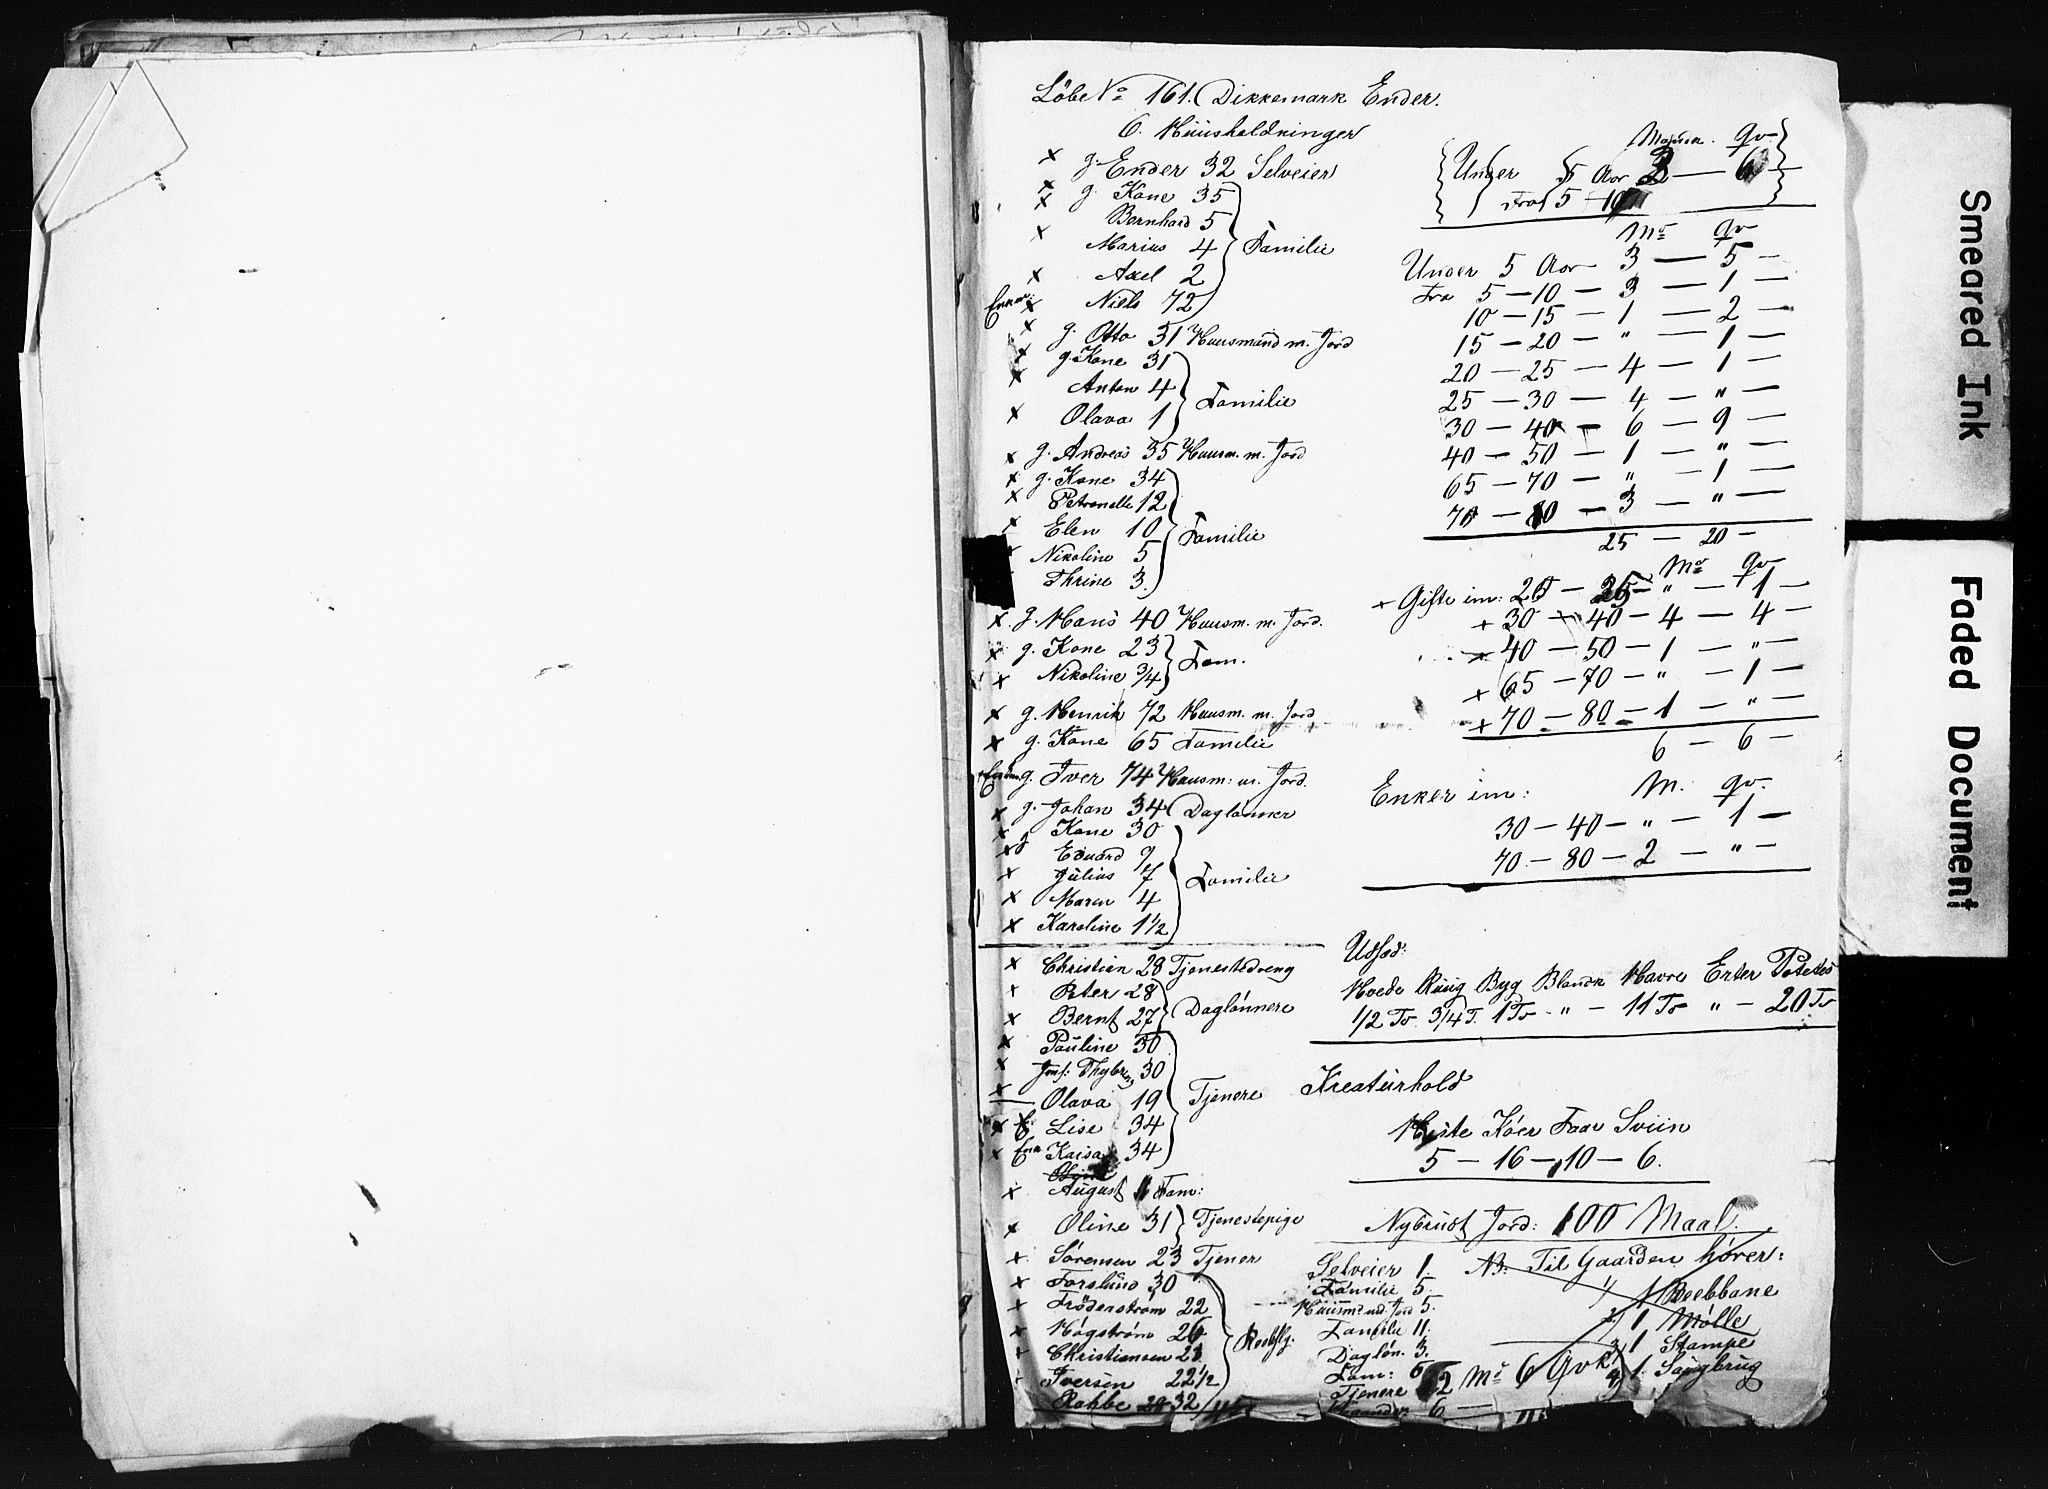 Löbe No 161. Dikkemark Ender.
6. Huusholdninger
x g. Ender 32 Selveier
x g. Kone 35
x Bernhard 5
x Marius 4 Familie
x Axel 2
Enkem: x Niels 72
x g. Otto 31 Huusmand m. Jord
x g. Kone 31
x Anton 4 Familie
x Olava 1
x g. Andreas 35 Huusm. m. Jord
x g. Kone 34
x Petronelle 12
x Elen 10 Familie
x Nikoline 5
Thrine 3.
x g. Hans 40 Huusm. m. Jord.
x g. Kone 23 Fam.
x Nikoline 3/4
x g. Henrik 72 Huusm. m. Jord
x g. Kone 65 Familie
g. Iver 74 Huusm: m. Jord.
x g. Johan 34 Daglønner
x g Kone 30
x Eduard 9
x Julius 7 Familie
x Maren 4
x Karoline 1 1/2
x Christian 28 Tjenestedreng
x Peter 28
x Bernt 27 Daglønnere
x Pauline 30
x Jmf: Thybring 30
x Olava 19 Tjenere
x Lise 34
x Enk Kaisa 34
x August Fam:
x Oline 31 Tjenestepige
x Sörensen 23 Tjener
x Forslund 30
x Fröderström 22
x Högström 26
Christiansen 21
Iversen 22 1/2
Rohbe 28 32
Mandk. Qv
Under 5 Aar 3 — 6 —
Fra 5 — 10
Mk Qv
Under 5 Aar 3 — 5 —
Fra 5 — 10 — 3 — 1 —
10 — 15 — 1 — 2 —
15 — 20 — " — 1 —
20 — 25 — 4 — 1 —
25 — 30 — 4 — " —
30 — 40 — 6 — 9 —
40 — 50 — 1 — " —
65 — 70 — " — 1 —
70 — 80 — 3 — " —
25 — 20 —
Mk Qv
+ Gifte im: 20 — 25 — " — 1 —
+ 30 — 40 — 4 — 4 —
x 40 — 50 — 1 — " —
+ 65 — 70 — " — 1 —
+ 70 — 80 — 1 — " —
6 — 6 —
Enker im: M. Qv.
30 — 40 — " — 1 —
70 — 80 — 2 — " —
Udsæd:
Hvede Ruug Byg Blandk Havre Erter Potetes
1/2 Tr 3/4 T. 1 Tr — " — 11 Tr " — 20 Tr
Kreaturhold
Heste Köer Faar Sviin
5 — 16 — 10 — 6.
Nybrudt Jord: 100 Maal.
Selveier 1.
Familie 5.
Huusm. md. Jord 5.
Familie 11.
Daglön. 3.
Fam: 5
Tjenere 12 Mk 6 Qvk
6 —
NB: Til Gaarden hörer:
1/ 1 Reebbane
2/ 1 Mølle
3/ 1 Stampe
4/ 1. Saugbrug
Smeared Ink
Faded Document